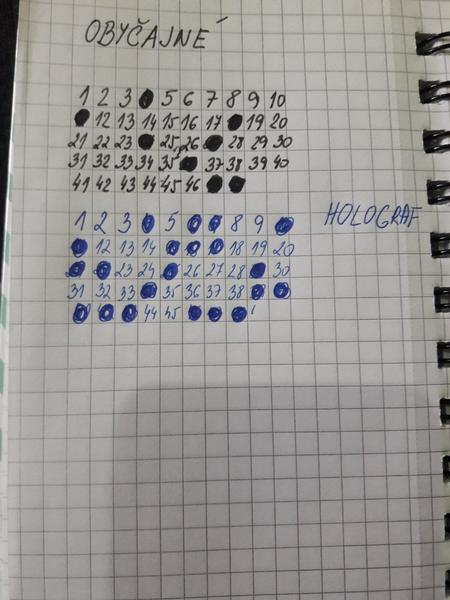 OBYČAJNÉ
1 2 3 5 6 7 8 9 10
12 13 14 15 16 17 19 20
21 22 23 25 26 28 29 30
31 32 33 34 35 37 38 39 40
41 42 43 44 45 46
HOLOGRAF
1 2 3 5 8 9
12 13 14 18 19 20
23 24 26 27 28 30
31 32 33 35 36 37 38
44 45